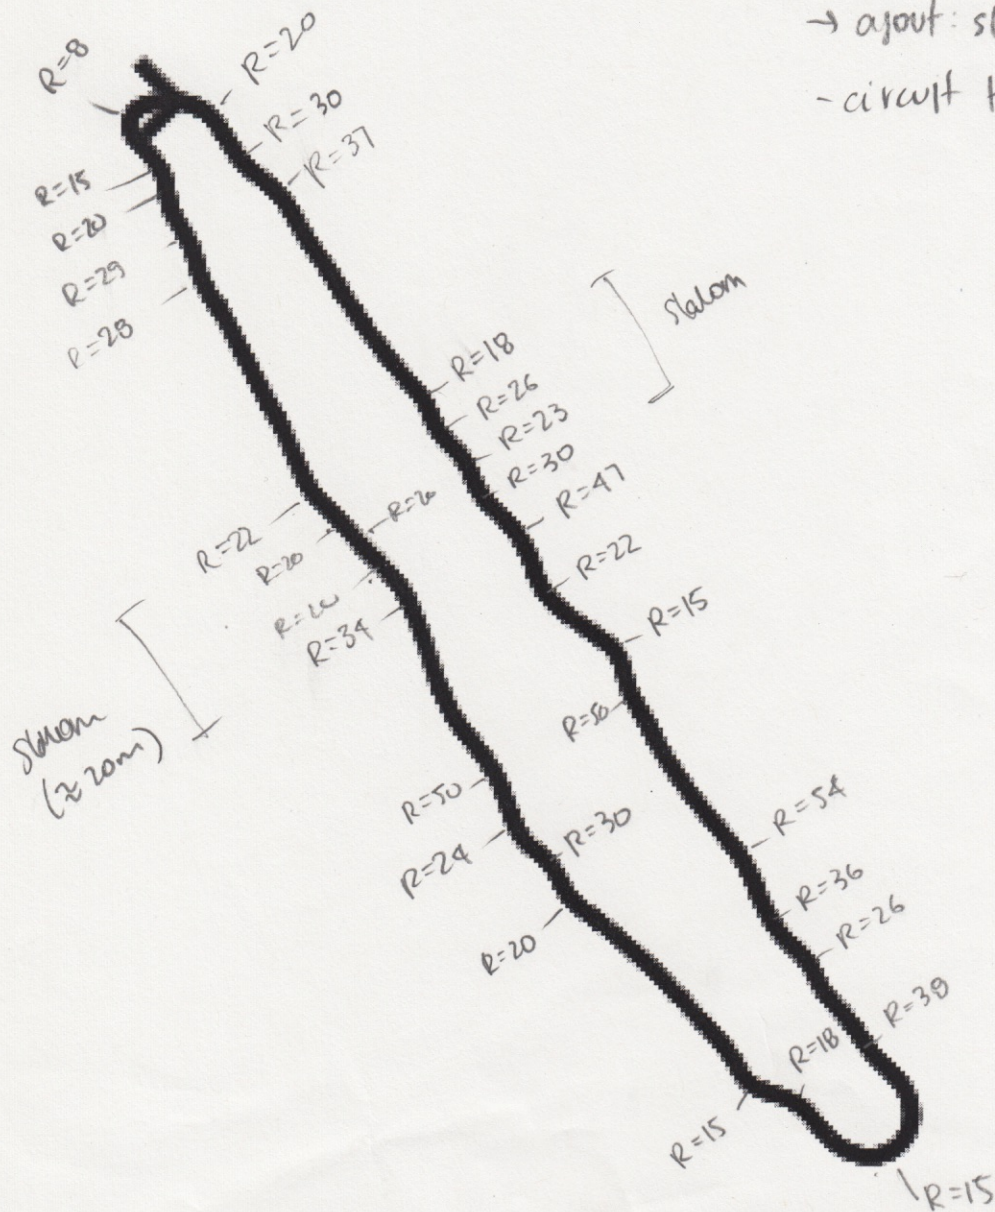 → ajout: sl
- circuit t
R=8
R=20
R=30
R=37
R=15
R=20
R=29
R=28
slalom
R=18
R=26
R=23
R=30
R=47
R=22
R=15
R=50
R=22
R=20
R=20
R=20
R=34
slalom
(≈20m)
R=50
R=24
R=30
R=20
R=54
R=36
R=26
R=39
R=18
R=15
R=15